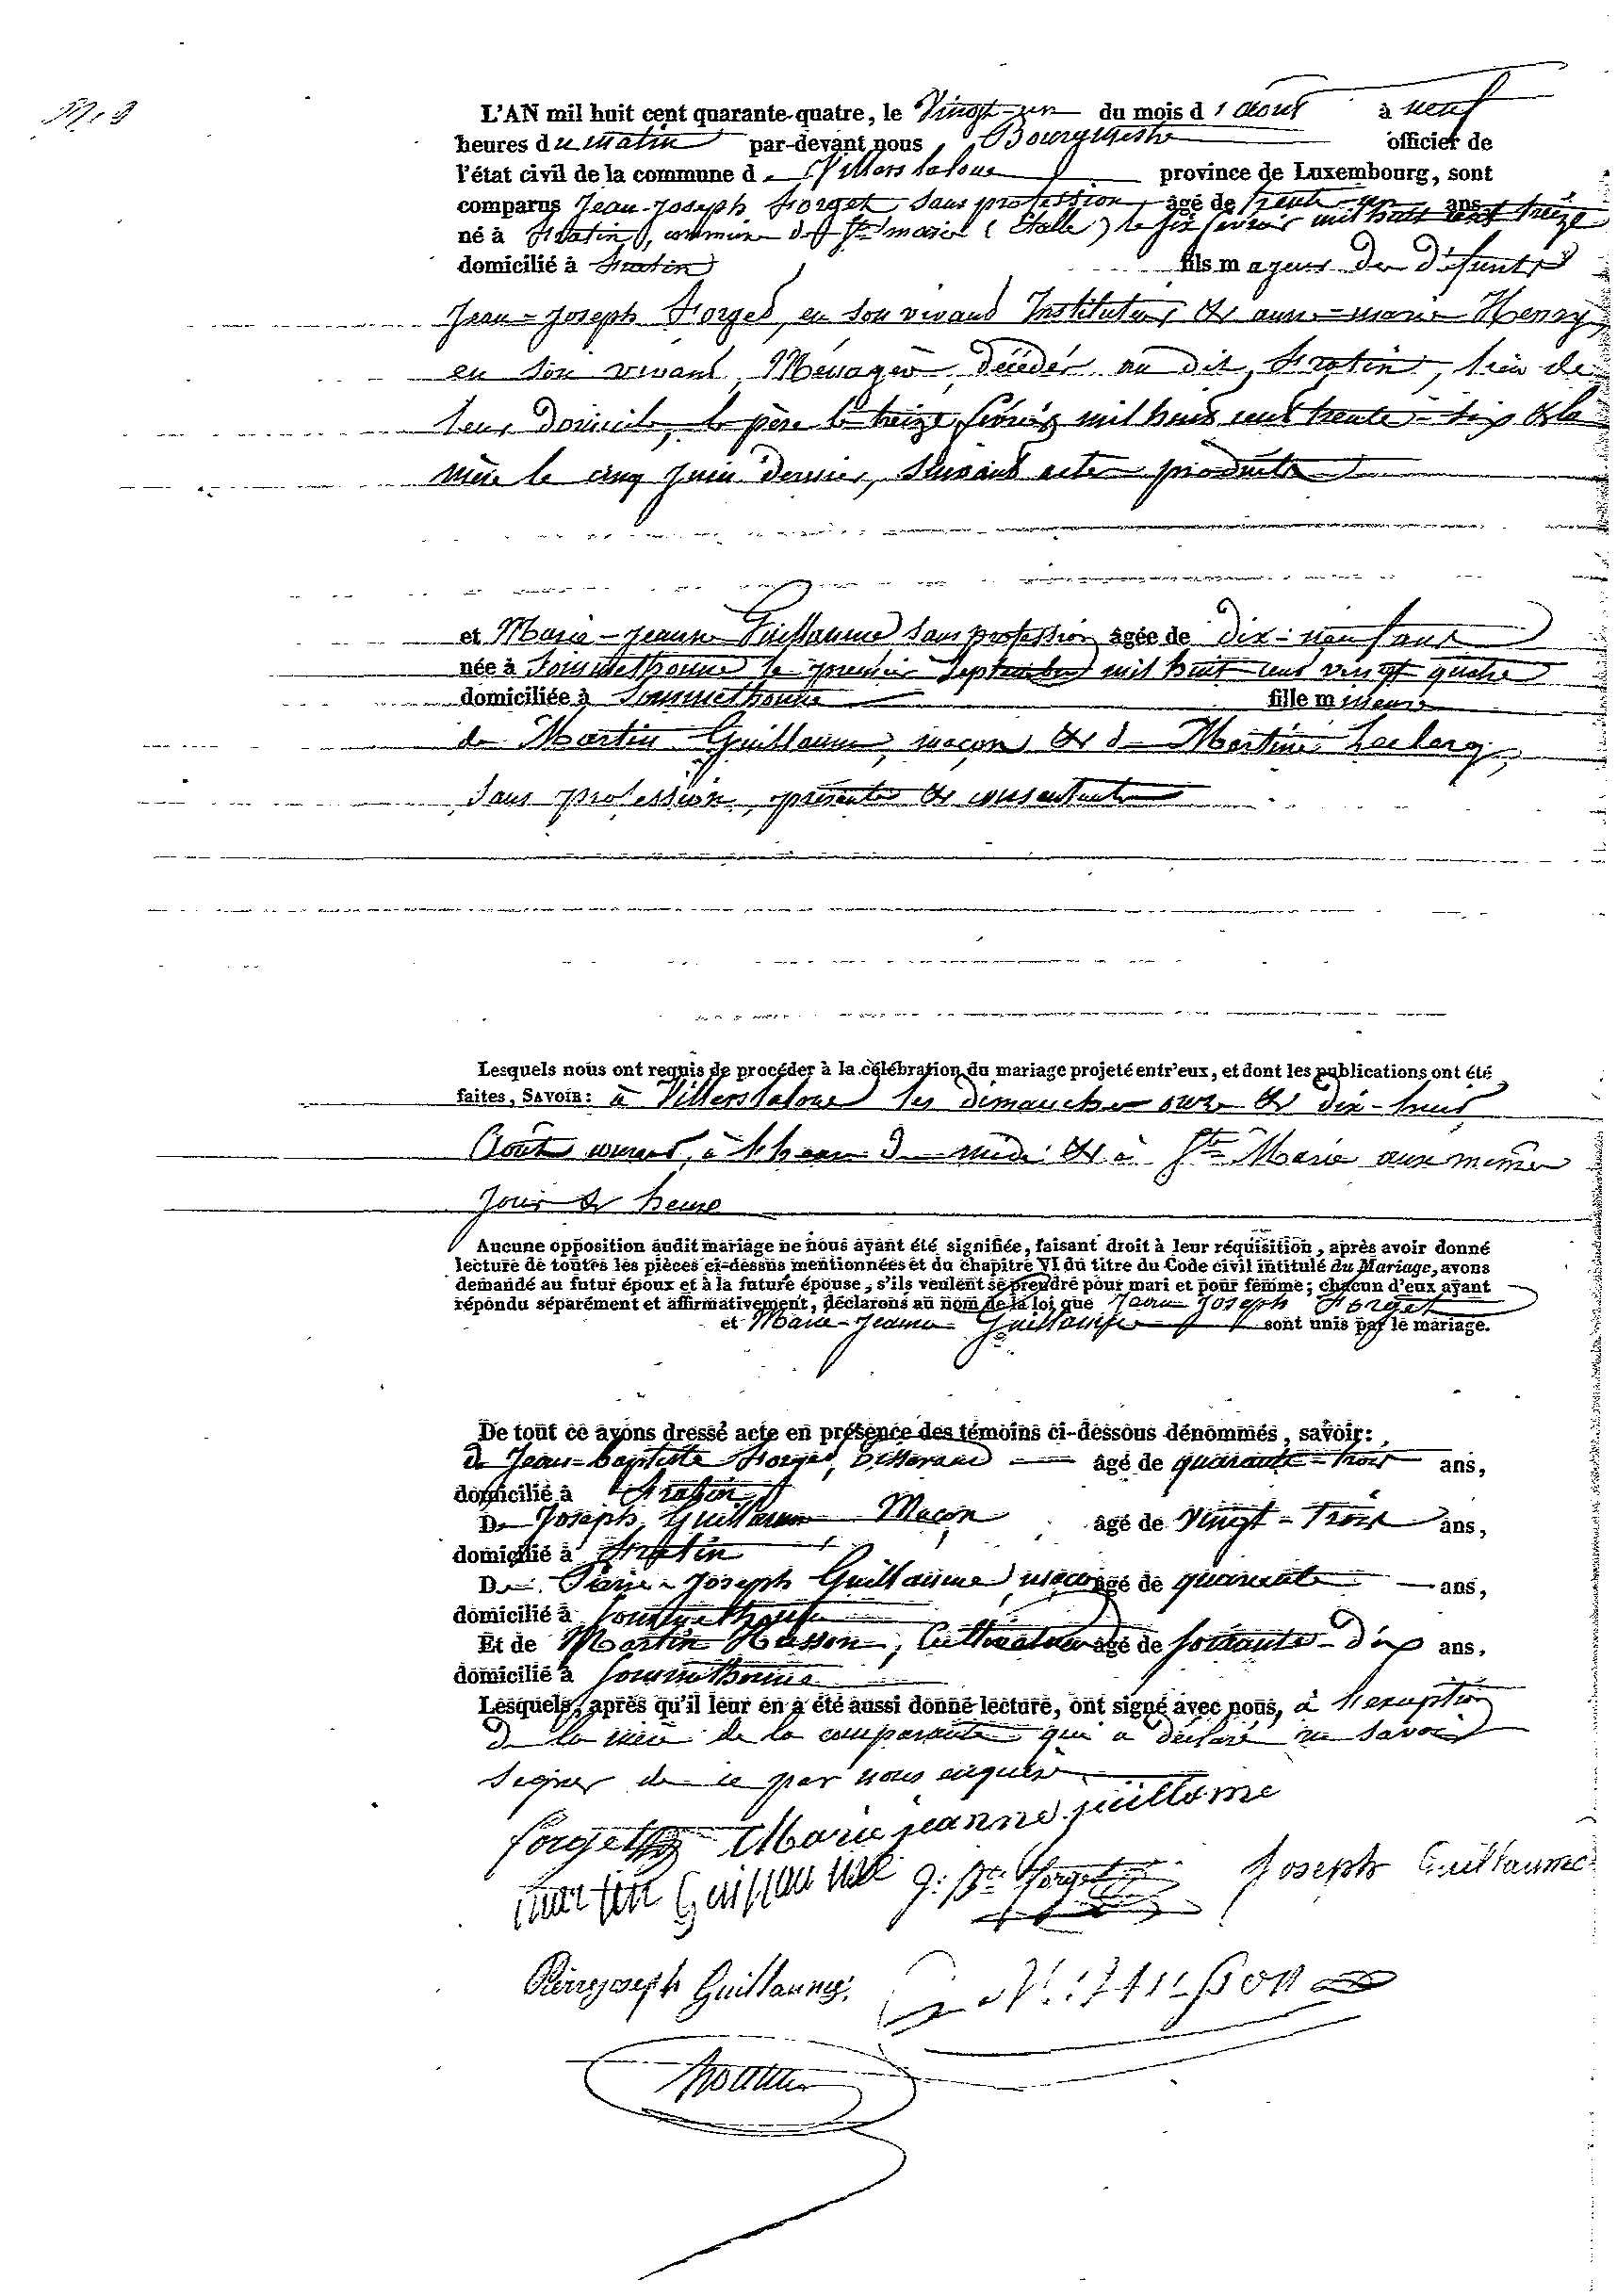 N. 9
L'AN mil huit cent quarante-quatre, le Vingt-un du mois d'août à neuf
heures du matin par-devant nous Bourgmestre officier de
l'état civil de la commune de Villers laloue province de Luxembourg, sont
comparus Jean-Joseph Forget sans profession, âgé de trente-un ans
né à Fratin, commune de Ste marie (Etalle) le six février mil huit cent treize
domicilié à Fratin fils majeur de défunts
Jean-Joseph Forget, en son vivant Instituteur, & anne-marie Henry
en son vivant Ménagère, décédés au dit Fratin, lieu de
leur domicile, le père le treize février mil huit cent trente-six & la
mère le cinq Juin dernier, suivant actes produits
et Marie-Jeanne Guillaume sans profession âgée de dix-neuf ans
née à Sommethonne le premier Septembre mil huit cent vingt quatre
domiciliée à Sommethonne fille mineure
de Martin Guillaume, maçon, & de Martine Leclerq,
sans profession, présents & consentants
Lesquels nous ont requis de procéder à la célébration du mariage projeté entr'eux, et dont les publications ont été
faites, SAVOIR: à Villers laloue les dimanches onze & dix-huit
Août courant, à l'heure de midi & à Ste Marie aux mêmes
jours & heure
Aucune opposition audit mariage ne nous ayant été signifiée, faisant droit à leur réquisition, après avoir donné
lecture de toutes les pièces ci-dessus mentionnées et du chapitre VI du titre du Code civil intitulé du Mariage, avons
demandé au futur époux et à la future épouse, s'ils veulent se prendre pour mari et pour femme; chacun d'eux ayant
répondu séparément et affirmativement, déclarons au nom de la loi que Jean Joseph Forget
et Marie-Jeanne Guillaume sont unis par le mariage.
De tout ce avons dressé acte en présence des témoins ci-dessous dénommés, savoir:
de Jean-baptiste Forget, âgé de quarante-trois ans,
domicilié à Fratin
De Joseph Guillaume Maçon âgé de vingt-trois ans,
domicilié à Fratin
De Pierre-Joseph Guillaume, maçon âgé de quarante ans,
domicilié à Sommethonne
Et de Martin Husson, Cultivateur âgé de soixante-dix ans,
domicilié à Sommethonne
Lesquels, après qu'il leur en a été aussi donné lecture, ont signé avec nous, à l'exception
de la mère de la comparante qui a déclaré ne savoir
signer de ce par nous enquise
forget Marie jeanne guillame
martin Guillaume J: Bte forget Joseph Guillaume
Pierrejoseph Guillaume M: Husson